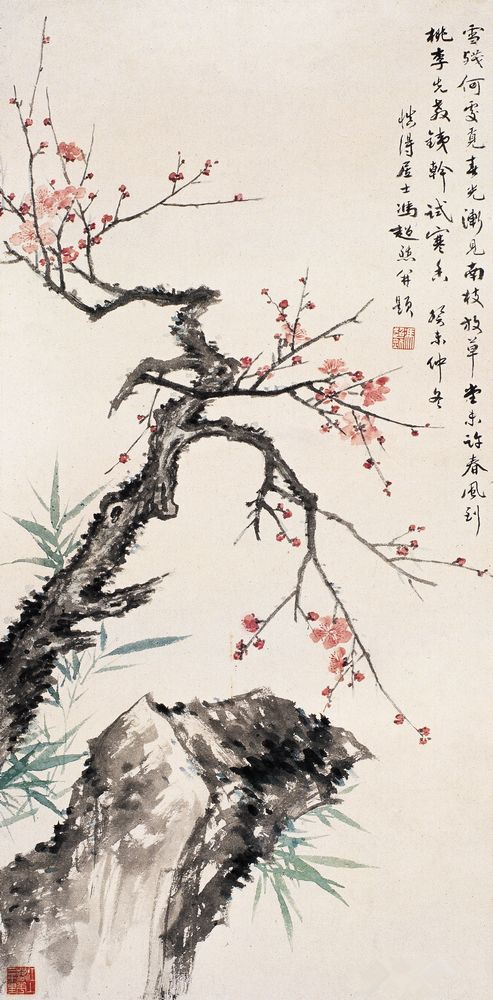 雪残何處覓春光漸見南枝放草堂未許春風到
桃李先教鐵幹試寒香 癸未仲冬
慎得居士馮超然并題